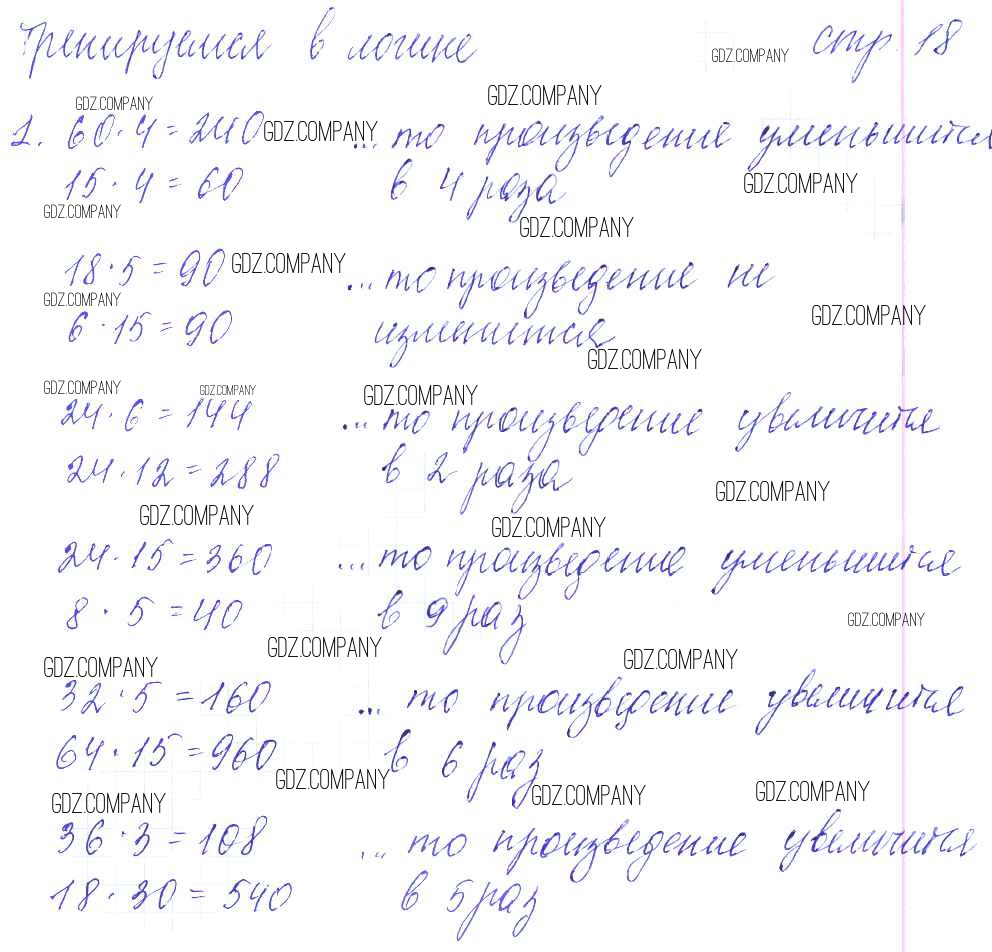 Тренируемся в логике стр. 18
GDZ.COMPANY
GDZ.COMPANY GDZ.COMPANY
1. 60·4=240 GDZ.COMPANY ...то произведение уменьшится
15·4=60 в 4 раза GDZ.COMPANY
GDZ.COMPANY GDZ.COMPANY
18·5=90 GDZ.COMPANY ...то произведение не
GDZ.COMPANY GDZ.COMPANY
6·15=90 изменится
GDZ.COMPANY
GDZ.COMPANY GDZ.COMPANY GDZ.COMPANY
24·6=144 ...то произведение увеличится
24·12=288 в 2 раза GDZ.COMPANY
GDZ.COMPANY GDZ.COMPANY
24·15=360 ...то произведение уменьшится
8·5=40 в 9 раз GDZ.COMPANY
GDZ.COMPANY GDZ.COMPANY GDZ.COMPANY
32·5=160 ... то произведение увеличится
64·15=960 в 6 раз
GDZ.COMPANY GDZ.COMPANY GDZ.COMPANY GDZ.COMPANY
36·3=108 ... то произведение увеличится
18·30=540 в 5 раз